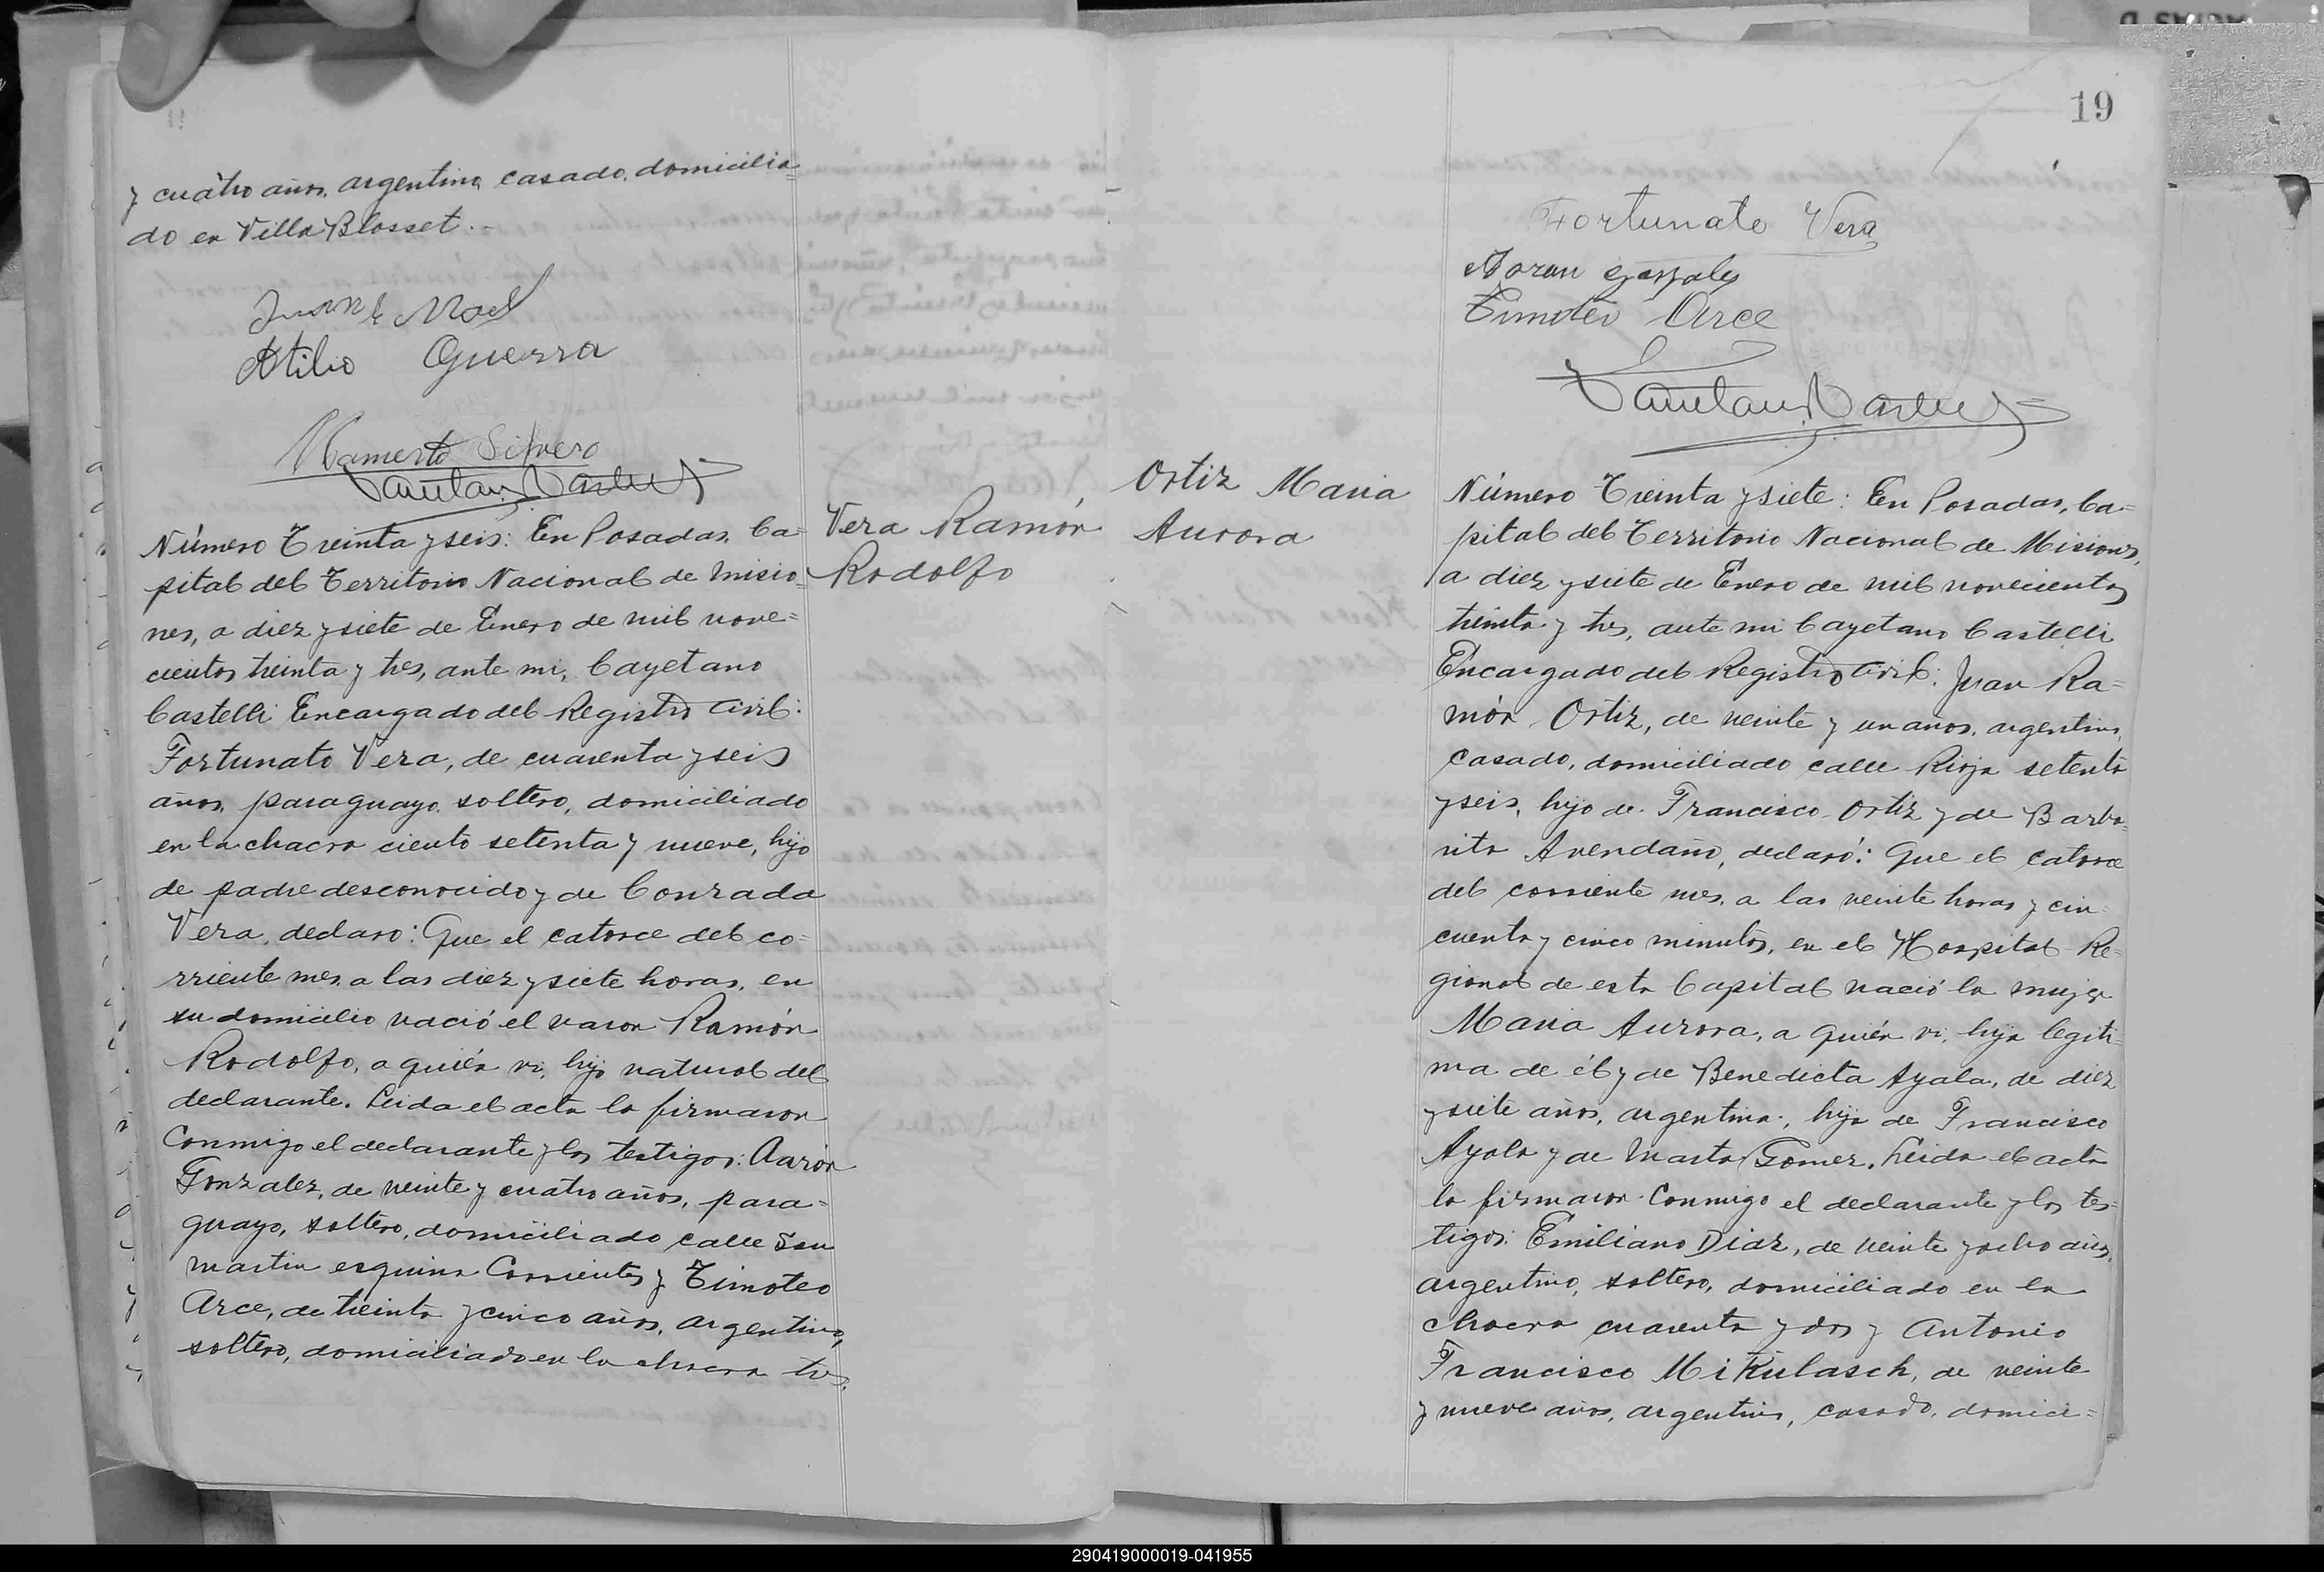 y cuatro años, argentino, casado, domicilia=
do en Villa Blosset.-
Juan
Atilio Guerra
Mamerto Silvero
Vera Ramón
Rodolfo
Número Treinta y seis: En Posadas, Ca=
pital del Territorio Nacional de Misio=
nes, a diez y siete de Enero de mil nove=
cientos treinta y tres, ante mi, Cayetano
Castelli Encargado del Registro Civil:
Fortunato Vera, de cuarenta y seis
años, paraguayo, soltero, domiciliado
en la chacra ciento setenta y nueve, hijo
de padre desconocido y de Conrada
Vera, declaró: Que el catorce del co=
rriente mes, a las diez y siete horas, en
su domicilio nació el varon Ramón
Rodolfo, a quién vi, hijo natural del
declarante. Leida el acta la firmaron
Conmigo el declarante y los testigos: Aarón
Gonzalez, de veinte y cuatro años, para=
guayo, soltero, domiciliado calle San
martin esquina Corrientes y Timoteo
Arce, de treinta y cinco años, argentino,
soltero, domiciliado en la chacra tres.
19
Fortunato Vera
Aaron Gonzalez
Timoteo Arce
Ortiz Maria
Aurora
Número Treinta y siete: En Posadas, Ca=
pital del Territorio Nacional de Misiones,
a diez y siete de Enero de mil novecientos
treinta y tres, ante mi Cayetano Castelli
Encargado del Registro Civil: Juan Ra=
món Ortiz, de veinte y un años, argentino,
casado, domiciliado calle Rioja setenta
y seis, hijo de Francisco Ortiz y de Barba=
rita Avendaño, declaró: Que el catorce
del corriente mes, a las veinte horas y cin=
cuenta y cinco minutos, en el Hospital Re=
gional de esta Capital nació la mujer
Maria Aurora, a quién vi, hija legiti=
ma de él y de Benedicta Ayala, de diez
y siete años, argentina, hija de Francisco
Ayala y de Marta Gomez. Leida el acta
la firmaron Conmigo el declarante y los tes=
tigos: Emiliano Diaz, de veinte y ocho años,
argentino, soltero, domiciliado en la
chacra cuarenta y dos y Antonio
Francisco Mikulasch, de veinte
y nueve años, argentino, casado, domici=
290419000019-041955